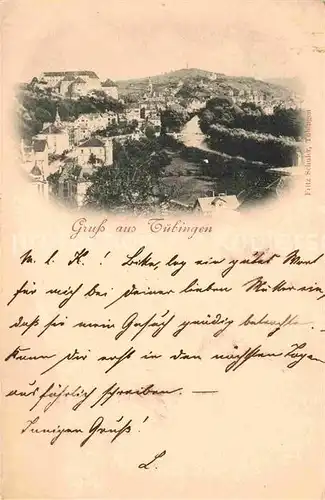 Gruß aus Tübingen
Fritz Schairer, Tübingen
M. l. K.! Bitte, leg ein gutes Wort
für mich bei Deiner lieben Mutter ein,
daß sie mein Gesuch gnädig betrachte.
Kann Dir erst in den nächsten Tagen
ausführlich schreiben. —
Innigen Gruß!
L.